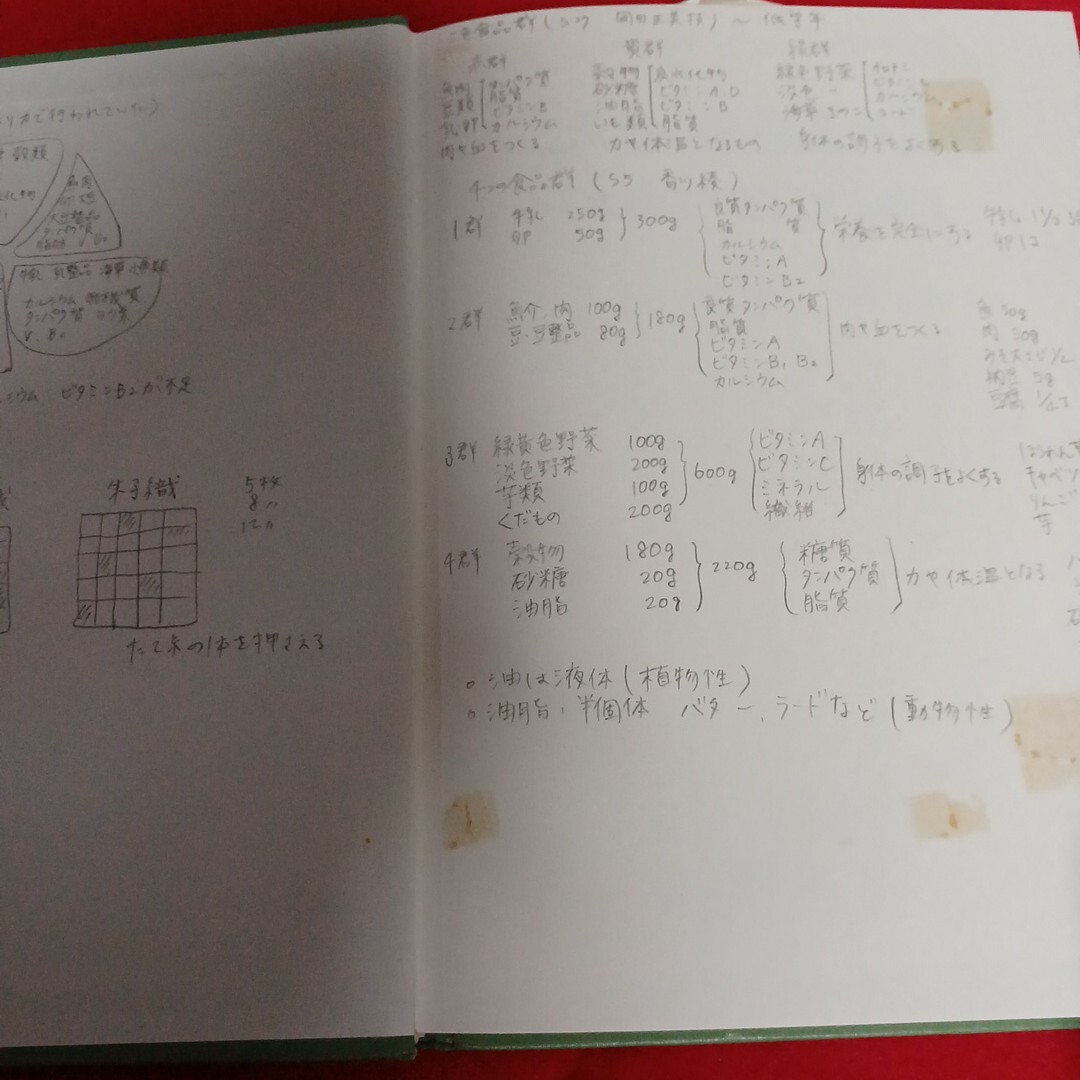 リカで行われていた)
穀類
魚肉
大豆製品
タンパク質
牛乳 乳製品 海草 小魚類
カルシウム 無機質
タンパク質 ヨウ素
V.B2
シウム ビタミンB2が不足
朱子織
5枚
8〃
12〃
たて糸の1本を押さえる
食品群(S27 岡田正美 ) ～低学年
赤群 黄群 緑群
魚肉 タンパク質 穀物 炭水化物 緑色野菜 カロチン
豆類 脂質 砂糖 ビタミンA.D 淡色 〃 ビタミンC
乳卵 ビタミンB 油脂 ビタミンB 海草 きのこ カルシウム
カルシウム いも類 脂質 ヨード
肉や血をつくる 力や体温となるもの 身体の調子をよくする
4つの食品群(S55 香川綾)
1群 牛乳 250g 300g 良質タンパク質 栄養を完全にする 牛乳 1 1/2
卵 50g 脂質 卵 12
カルシウム
ビタミンA
ビタミンB2
2群 魚介、肉 100g 180g 良質タンパク質 肉や血をつくる 魚 50g
豆・豆製品 80g 脂質 肉 50g
ビタミンA みそ 大さじ1/2
ビタミンB1 B2 納豆 5g
カルシウム 豆腐 1/2丁
3群 緑黄色野菜 100g 600g ビタミンA 身体の調子をよくする ほうれん草
淡色野菜 200g ビタミンC キャベツ
芋類 100g ミネラル りんご
くだもの 200g 繊維 芋
4群 穀物 180g 220g 糖質 力や体温となる
砂糖 20g タンパク質
油脂 20g 脂質
○ 油は液体(植物性)
○ 油脂・半個体 バター、ラードなど(動物性)